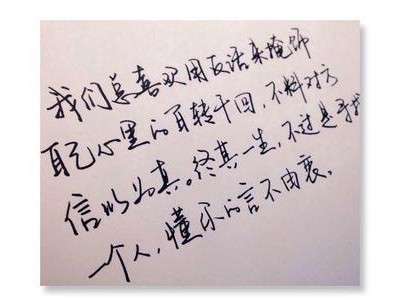 我们总喜欢用反话来掩饰
自己心里的百转千回，不料对方
信以为真。终其一生，不过是寻找
一个人，懂你的言不由衷。